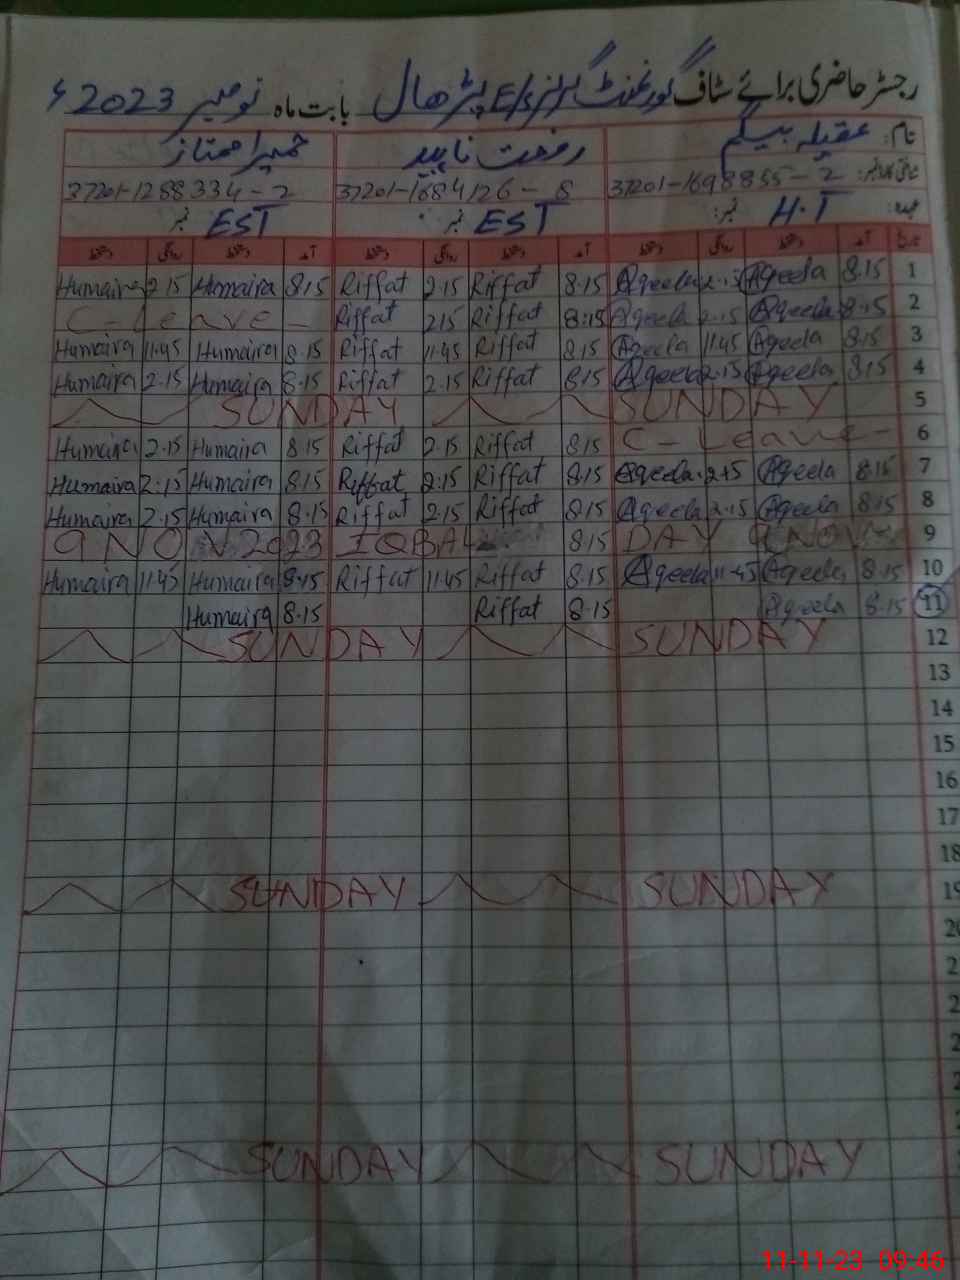 رجسٹر حاضری برائے سٹاف گورنمنٹ گرلز E/S پنڑھال بابت ماہ نومبر 2023ء
نام: عقیلہ بیگم رفعت ناہید حمیرا ممتاز
37201-1698855-2 37201-1684126-8 37201-1288334-2
عہدہ: H.T نمبر: EST نمبر: EST نمبر
تاریخ آمد دستخط روانگی دستخط آمد دستخط روانگی دستخط آمد دستخط روانگی دستخط
Humaira 2.15 Humaira 8.15 Riffat 2.15 Riffat 8.15 Aqeela 2.15 Aqeela 8.15 1
C-Leave- Riffat 215 Riffat 8:15 Aqeela 2.15 Aqeela 8.15 2
Humaira 11.45 Humaira 8.15 Riffat 11.45 Riffat 8.15 Aqeela 11.45 Aqeela 8.15 3
Humaira 2.15 Humaira 8.15 Riffat 2.15 Riffat 8.15 Aqeela 2.15 Aqeela 8.15 4
SUNDAY SUNDAY 5
Humaira 2.15 Humaira 8.15 Riffat 2.15 Riffat 8.15 C-Leave- 6
Humaira 2.15 Humaira 8.15 Riffat 2.15 Riffat 8.15 Aqeela 2.15 Aqeela 8.15 7
Humaira 2.15 Humaira 8.15 Riffat 2.15 Riffat 8.15 Aqeela 2.15 Aqeela 8.15 8
9 NOV 2023 IQBAL 8.15 DAY 9 NOV 9
Humaira 11.45 Humaira 8.15 Riffat 11.45 Riffat 8.15 Aqeela 11.45 Aqeela 8.15 10
Humaira 8.15 Riffat 8.15 Aqeela 8.15 11
SUNDAY SUNDAY 12
13
14
15
16
17
18
SUNDAY SUNDAY 19
SUNDAY SUNDAY
11-11-23 09:46